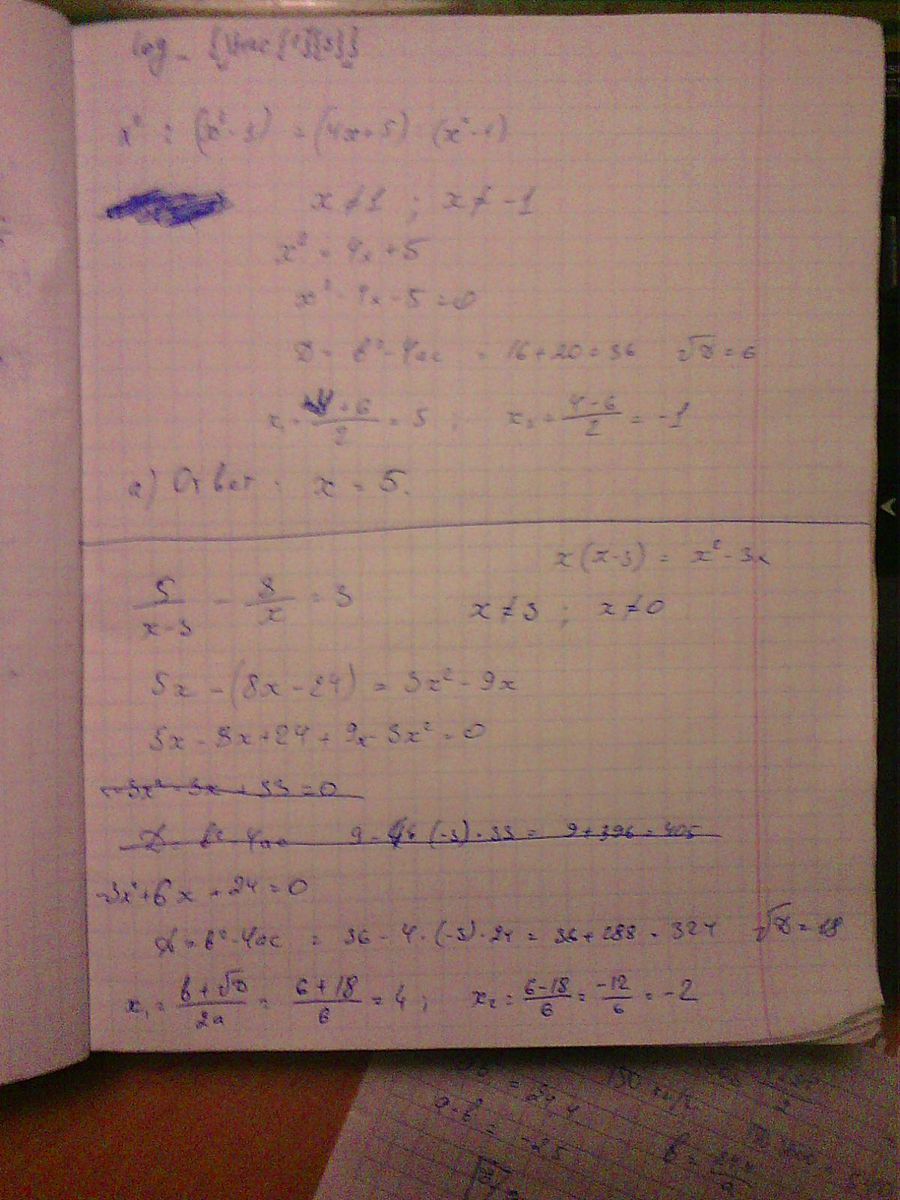 log_{\frac{1}{3}}
x² : (x² - 1) = (4x+5) : (x² - 1)
x ≠ 1 ; x ≠ -1
x² = 4x + 5
x² - 4x - 5 = 0
D = b² - 4ac = 16 + 20 = 36 √D = 6
x₁ = (4+6)/2 = 5 ; x₂ = (4-6)/2 = -1
а) Ответ: x = 5.
x(x-3) = x² - 3x
5/(x-3) - 8/x = 3 x ≠ 3 ; x ≠ 0
5x - (8x - 24) = 3x² - 9x
5x - 8x + 24 + 9x - 3x² = 0
-3x² - 3x + 33 = 0
D = b² - 4ac 9 - 4·(-3)·33 = 9 + 396 = 405
-3x² + 6x + 24 = 0
D = b² - 4ac = 36 - 4·(-3)·24 = 36 + 288 = 324 √D = 18
x₁ = (b+√D)/2a = (6+18)/6 = 4 ; x₂ = (6-18)/6 = -12/6 = -2
= 244
150
a·b = -25